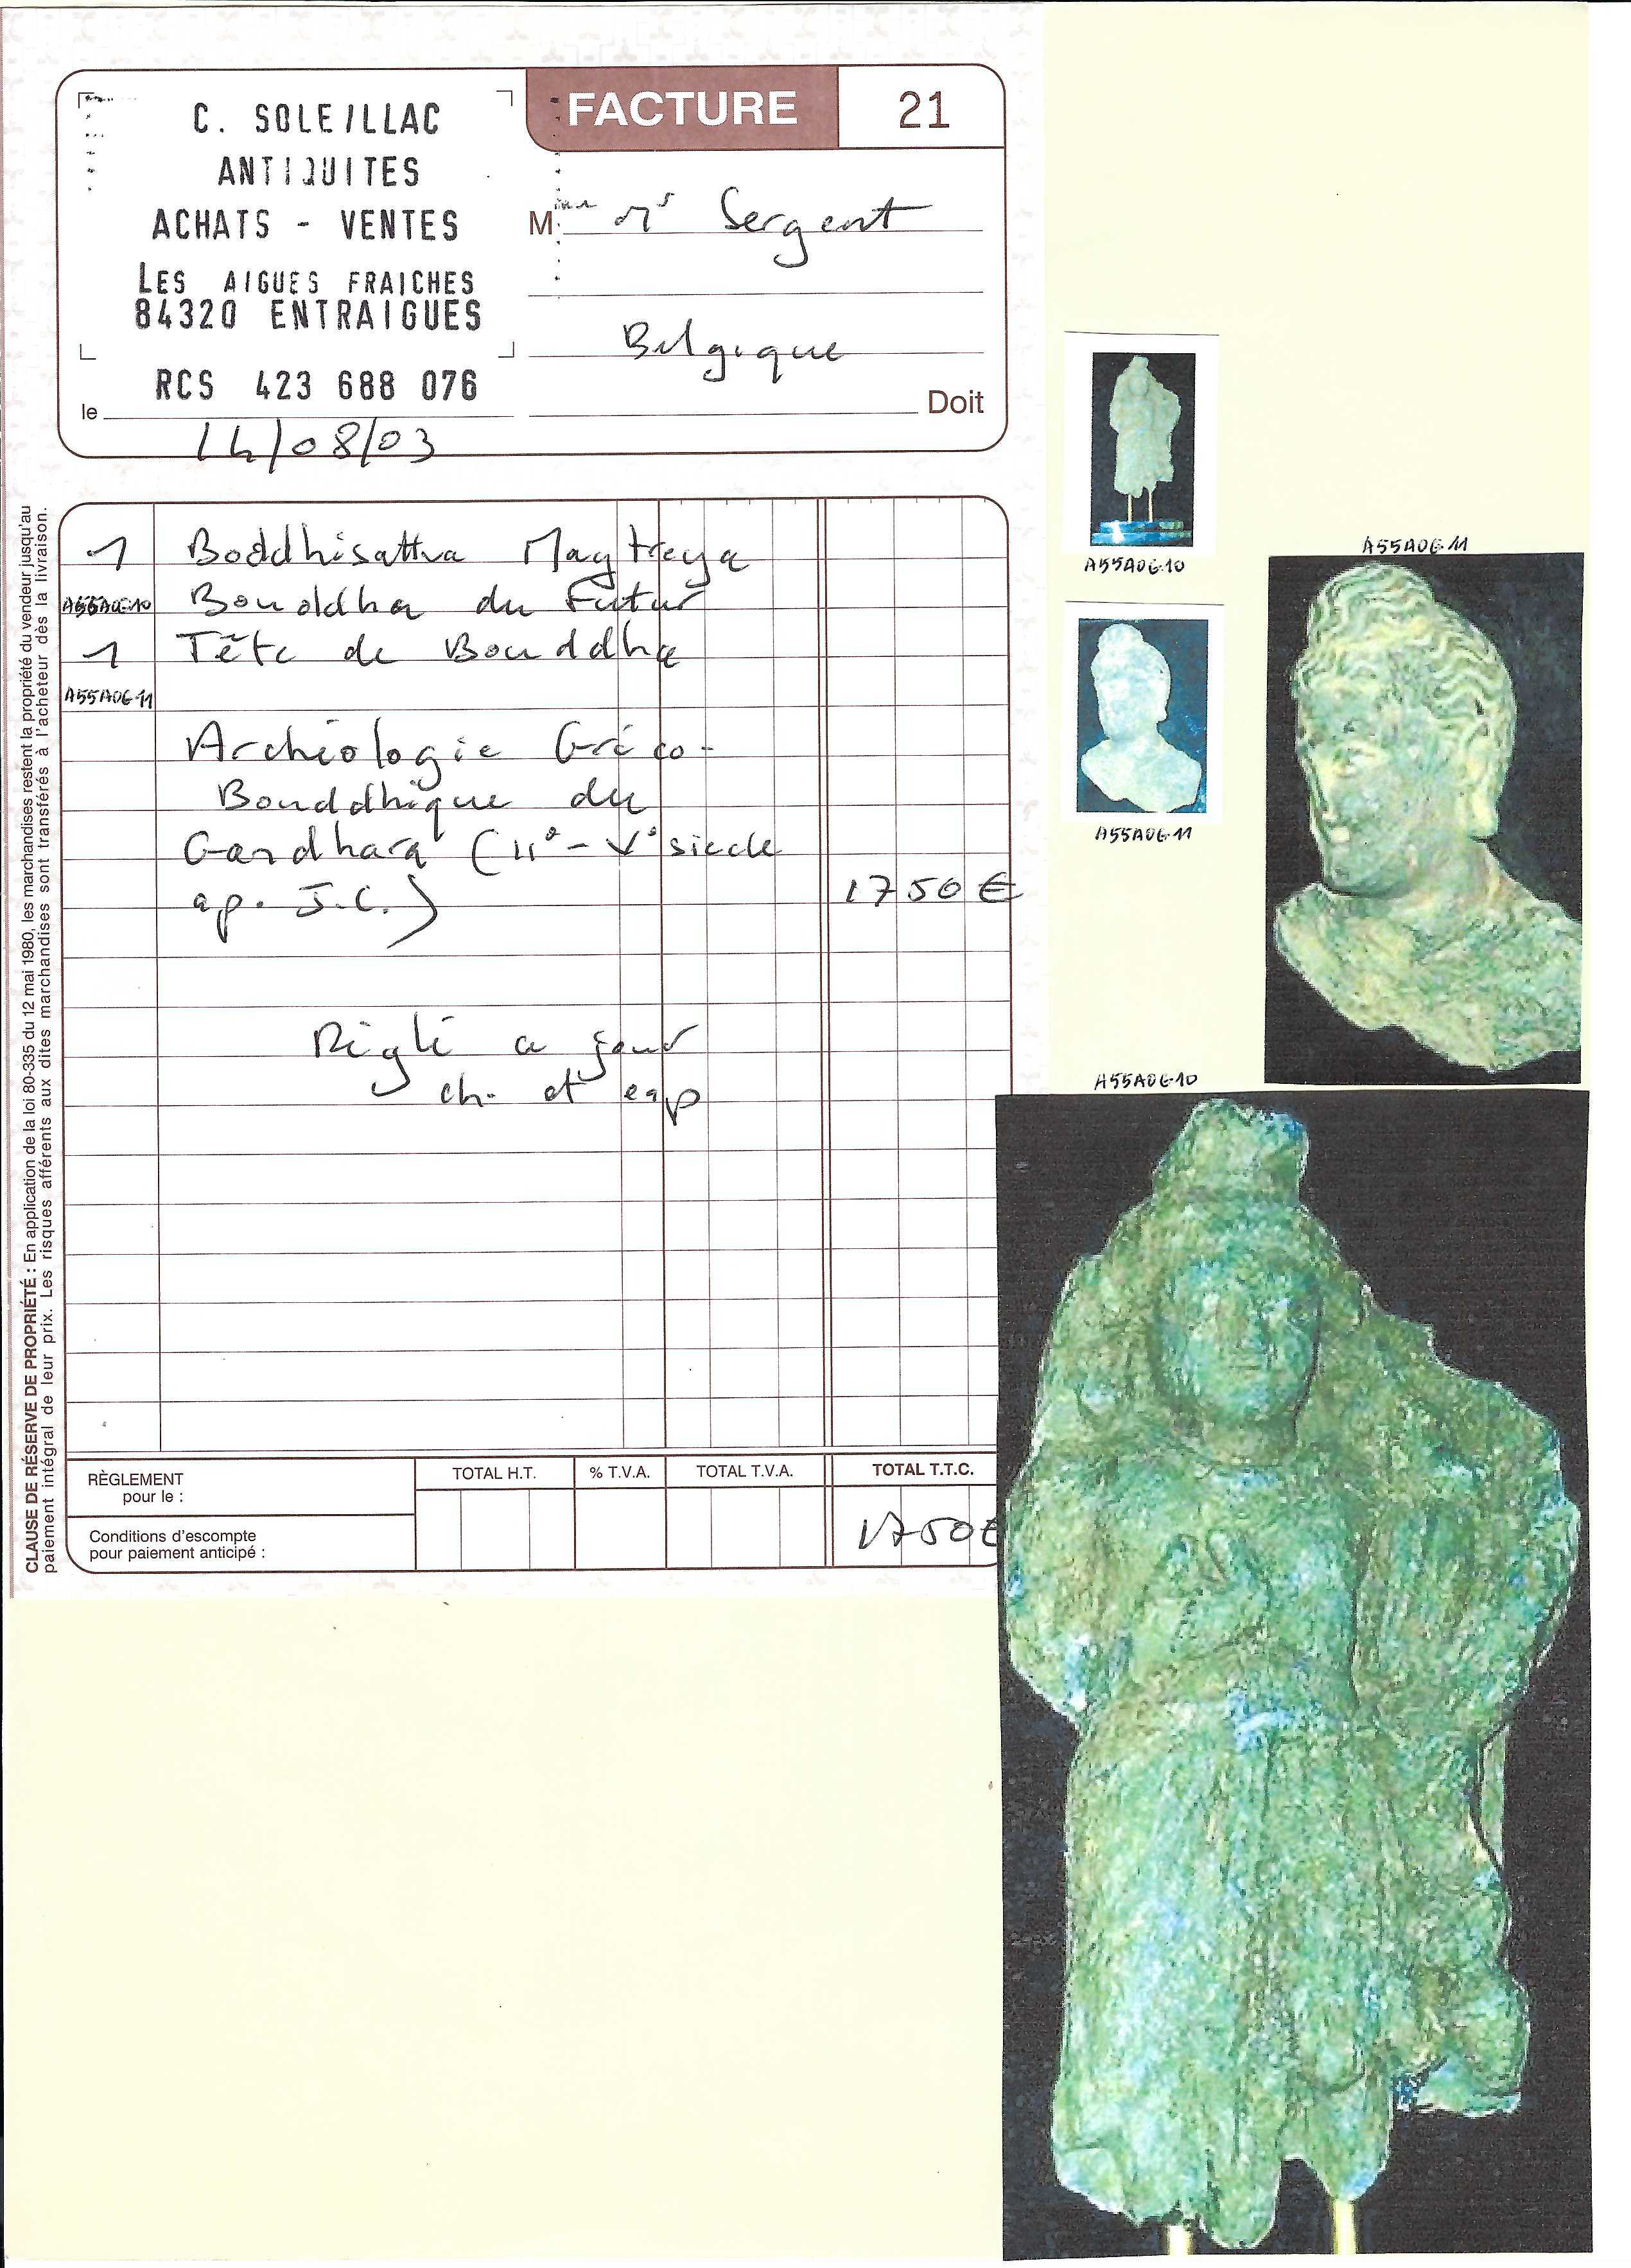 C. SOLEILLAC
ANTIQUITES
ACHATS - VENTES
LES AIGUES FRAICHES
84320 ENTRAIGUES
RCS 423 688 076
le 14/08/03
FACTURE 21
Mme Mr Sergent
Belgique
Doit
1 Boddhisattva Maytreya
A55A06-10 Bouddha du Futur
1 Tête de Bouddha
A55A06-11
Archéologie Gréco-
Bouddhique du
Gandhara (II° - V° siecle
ap. J.C.) 1750 €
Réglé a jour
ch. et esp
RÈGLEMENT
pour le :
Conditions d'escompte
pour paiement anticipé :
TOTAL H.T. % T.V.A. TOTAL T.V.A. TOTAL T.T.C.
1750€
CLAUSE DE RÉSERVE DE PROPRIÉTÉ : En application de la loi 80-335 du 12 mai 1980, les marchandises restent la propriété du vendeur jusqu'au
paiement intégral de leur prix. Les risques afférents aux dites marchandises sont transférés à l'acheteur dès la livraison.
A55A06-10
A55A06-11
A55A06-11
A55A06-10